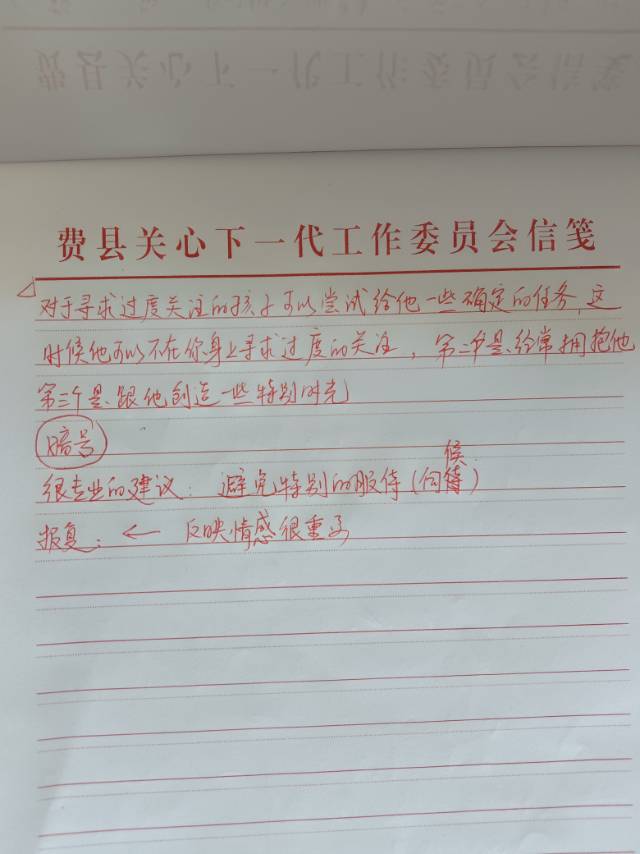 费县关心下一代工作委员会信笺
费县关心下一代工作委员会信笺
对于寻求过度关注的孩子可以尝试给他一些确定的任务,这
时候他可以不在你身上寻求过度的关注,第二个是、经常拥抱他
第三个是、跟他创造一些特别时光
暗号
候
很专业的建议:避免特别的服侍(伺待)
报复:← 反映情感很重要